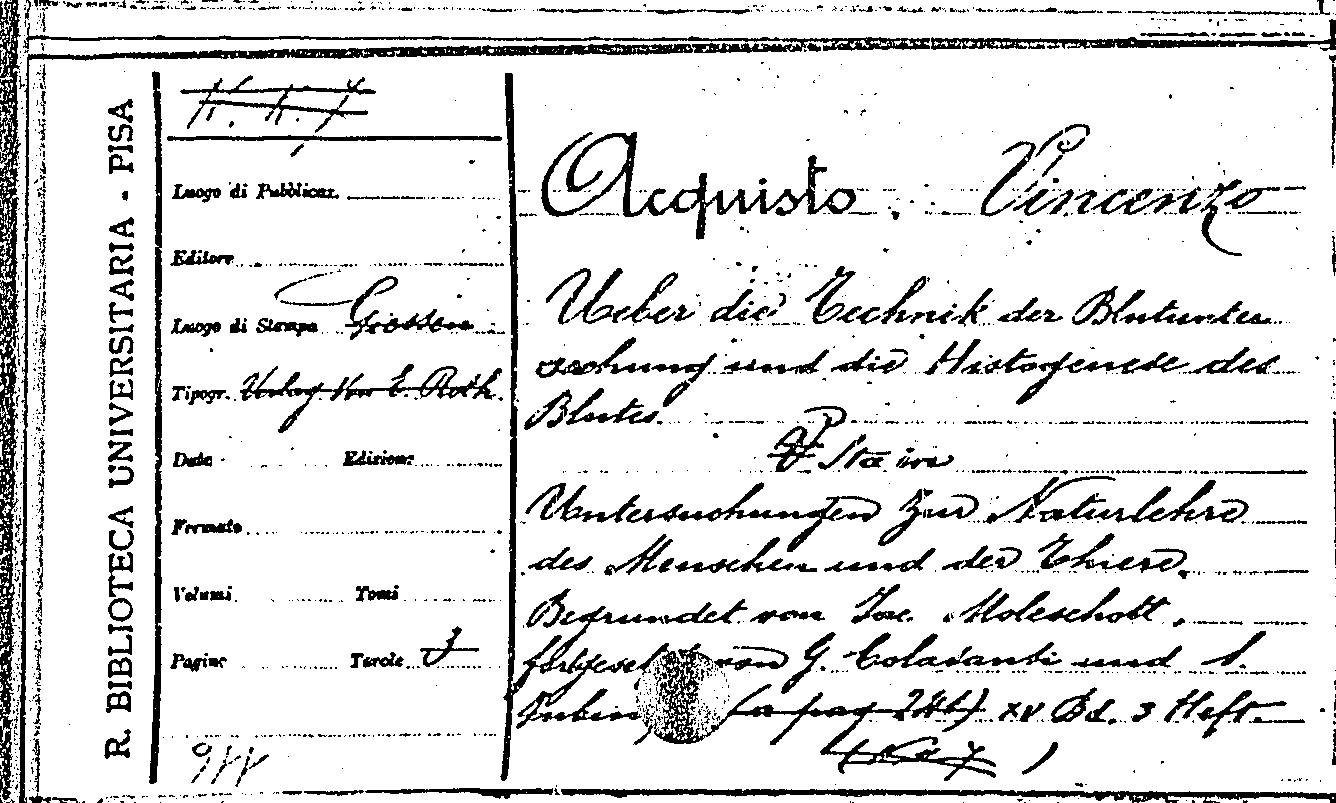 R. BIBLIOTECA UNIVERSITARIA - PISA
K. K. 7
Luogo di Pubblicaz.
Editore
Luogo di Stampa Giessen
Tipogr. Verlag von E. Roth
Data Edizione
Formato
Volumi Tomi
Pagine Tavole
Acquisto. Vincenzo
Ueber die Technik der Blutunter
suchung und die Histogenese des
Blutes.
Untersuchungen zur Naturlehre
des Menschen und der Thiere.
Begrundet von Jac. Moleschott.
von G. Colasanti und S.
(a pag 246) XV Bd. 3 Heft.